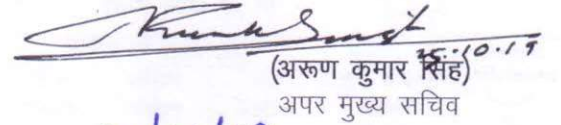 25.10.19
(अरूण कुमार सिंह)
अपर मुख्य सचिव